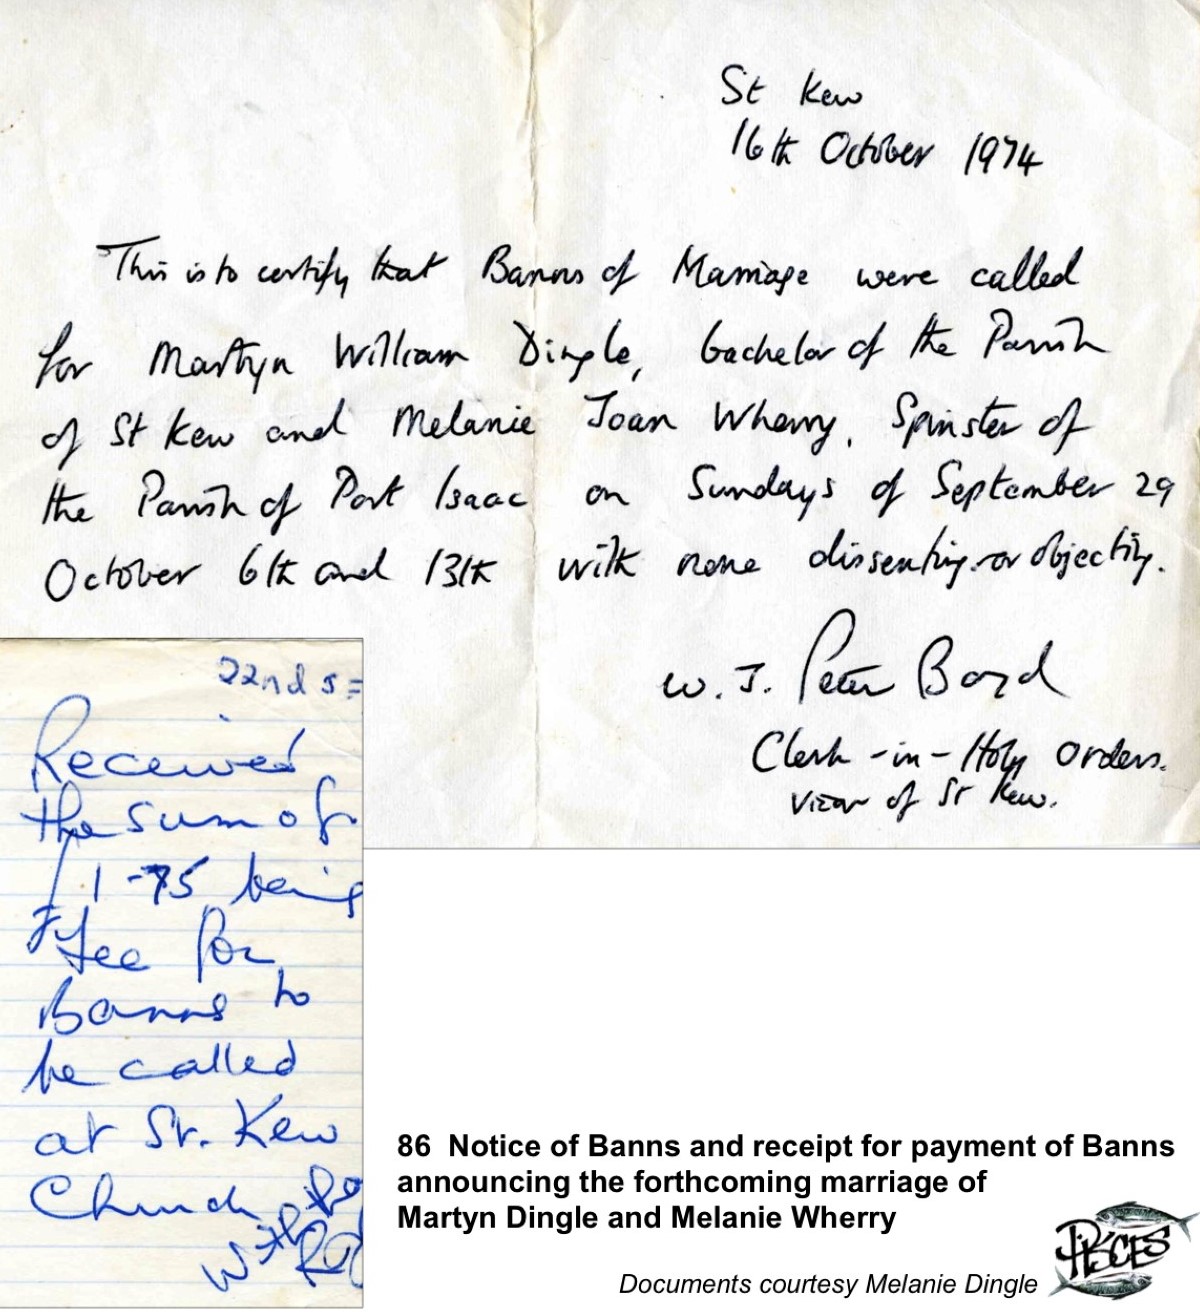 St Kew
16th October 1974
This is to certify that Banns of Marriage were called
for Martyn William Dingle, bachelor of the Parish
of St Kew and Melanie Joan Wherry, Spinster of
the Parish of Port Isaac on Sundays of September 29
October 6th and 13th with none dissenting or objecting.
W. J. Peter Boyd
Clerk-in-Holy Orders.
Vicar of St Kew.
22nd S
Received
the sum of
£1-75 being
Fee for
Banns to
be called
at St. Kew
Church
86 Notice of Banns and receipt for payment of Banns
announcing the forthcoming marriage of
Martyn Dingle and Melanie Wherry
Documents courtesy Melanie Dingle
PISCES